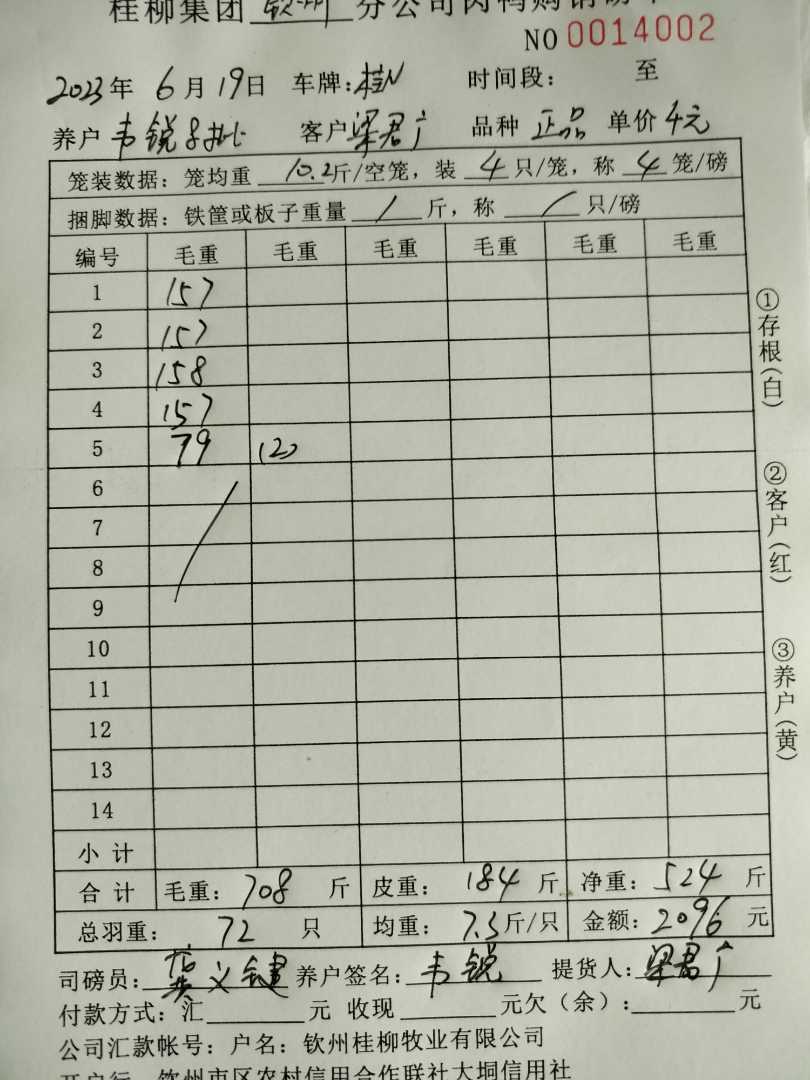 桂柳集团 钦州 分公司肉鸭购销磅单
NO 0014002
2023年 6月19日 车牌:桂N 时间段: 至
养户 韦锐 客户梁君广 品种 正品 单价4元
笼装数据:笼均重 10.2斤/空笼,装 4 只/笼,称 4 笼/磅
捆脚数据:铁筐或板子重量 / 斤,称 / 只/磅
编号 毛重 毛重 毛重 毛重 毛重 毛重
1 157
2 157
3 158
4 157
5 79 (2)
6
7
8
9
10
11
12
13
14
小计
合计 毛重:708 斤 皮重:184 斤 净重:524 斤
总羽重: 72 只 均重:7.3斤/只 金额:2096 元
司磅员: 义健 养户签名:韦锐 提货人:梁君广
付款方式:汇 元 收现 元欠(余): 元
公司汇款帐号:户名:钦州桂柳牧业有限公司
开户行 钦州市区农村信用合作联社大垌信用社
①存根(白)
②客户(红)
③养户(黄)